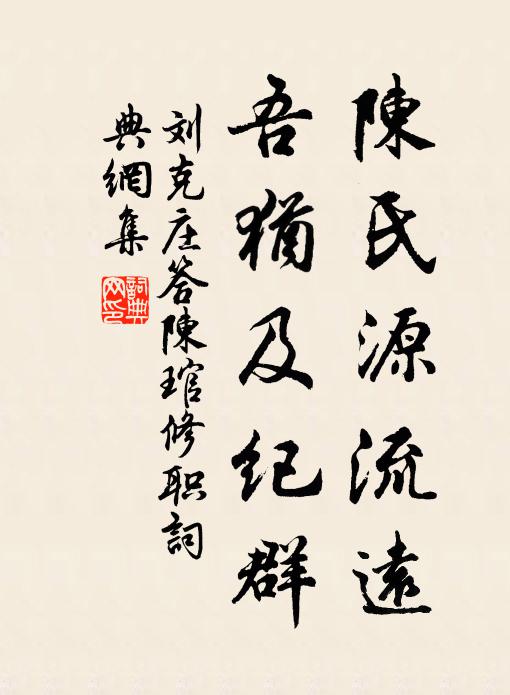 陳氏源流遠
吾猶及紀群
刘克庄答陳琯修职詞
典網集
詞典
网印